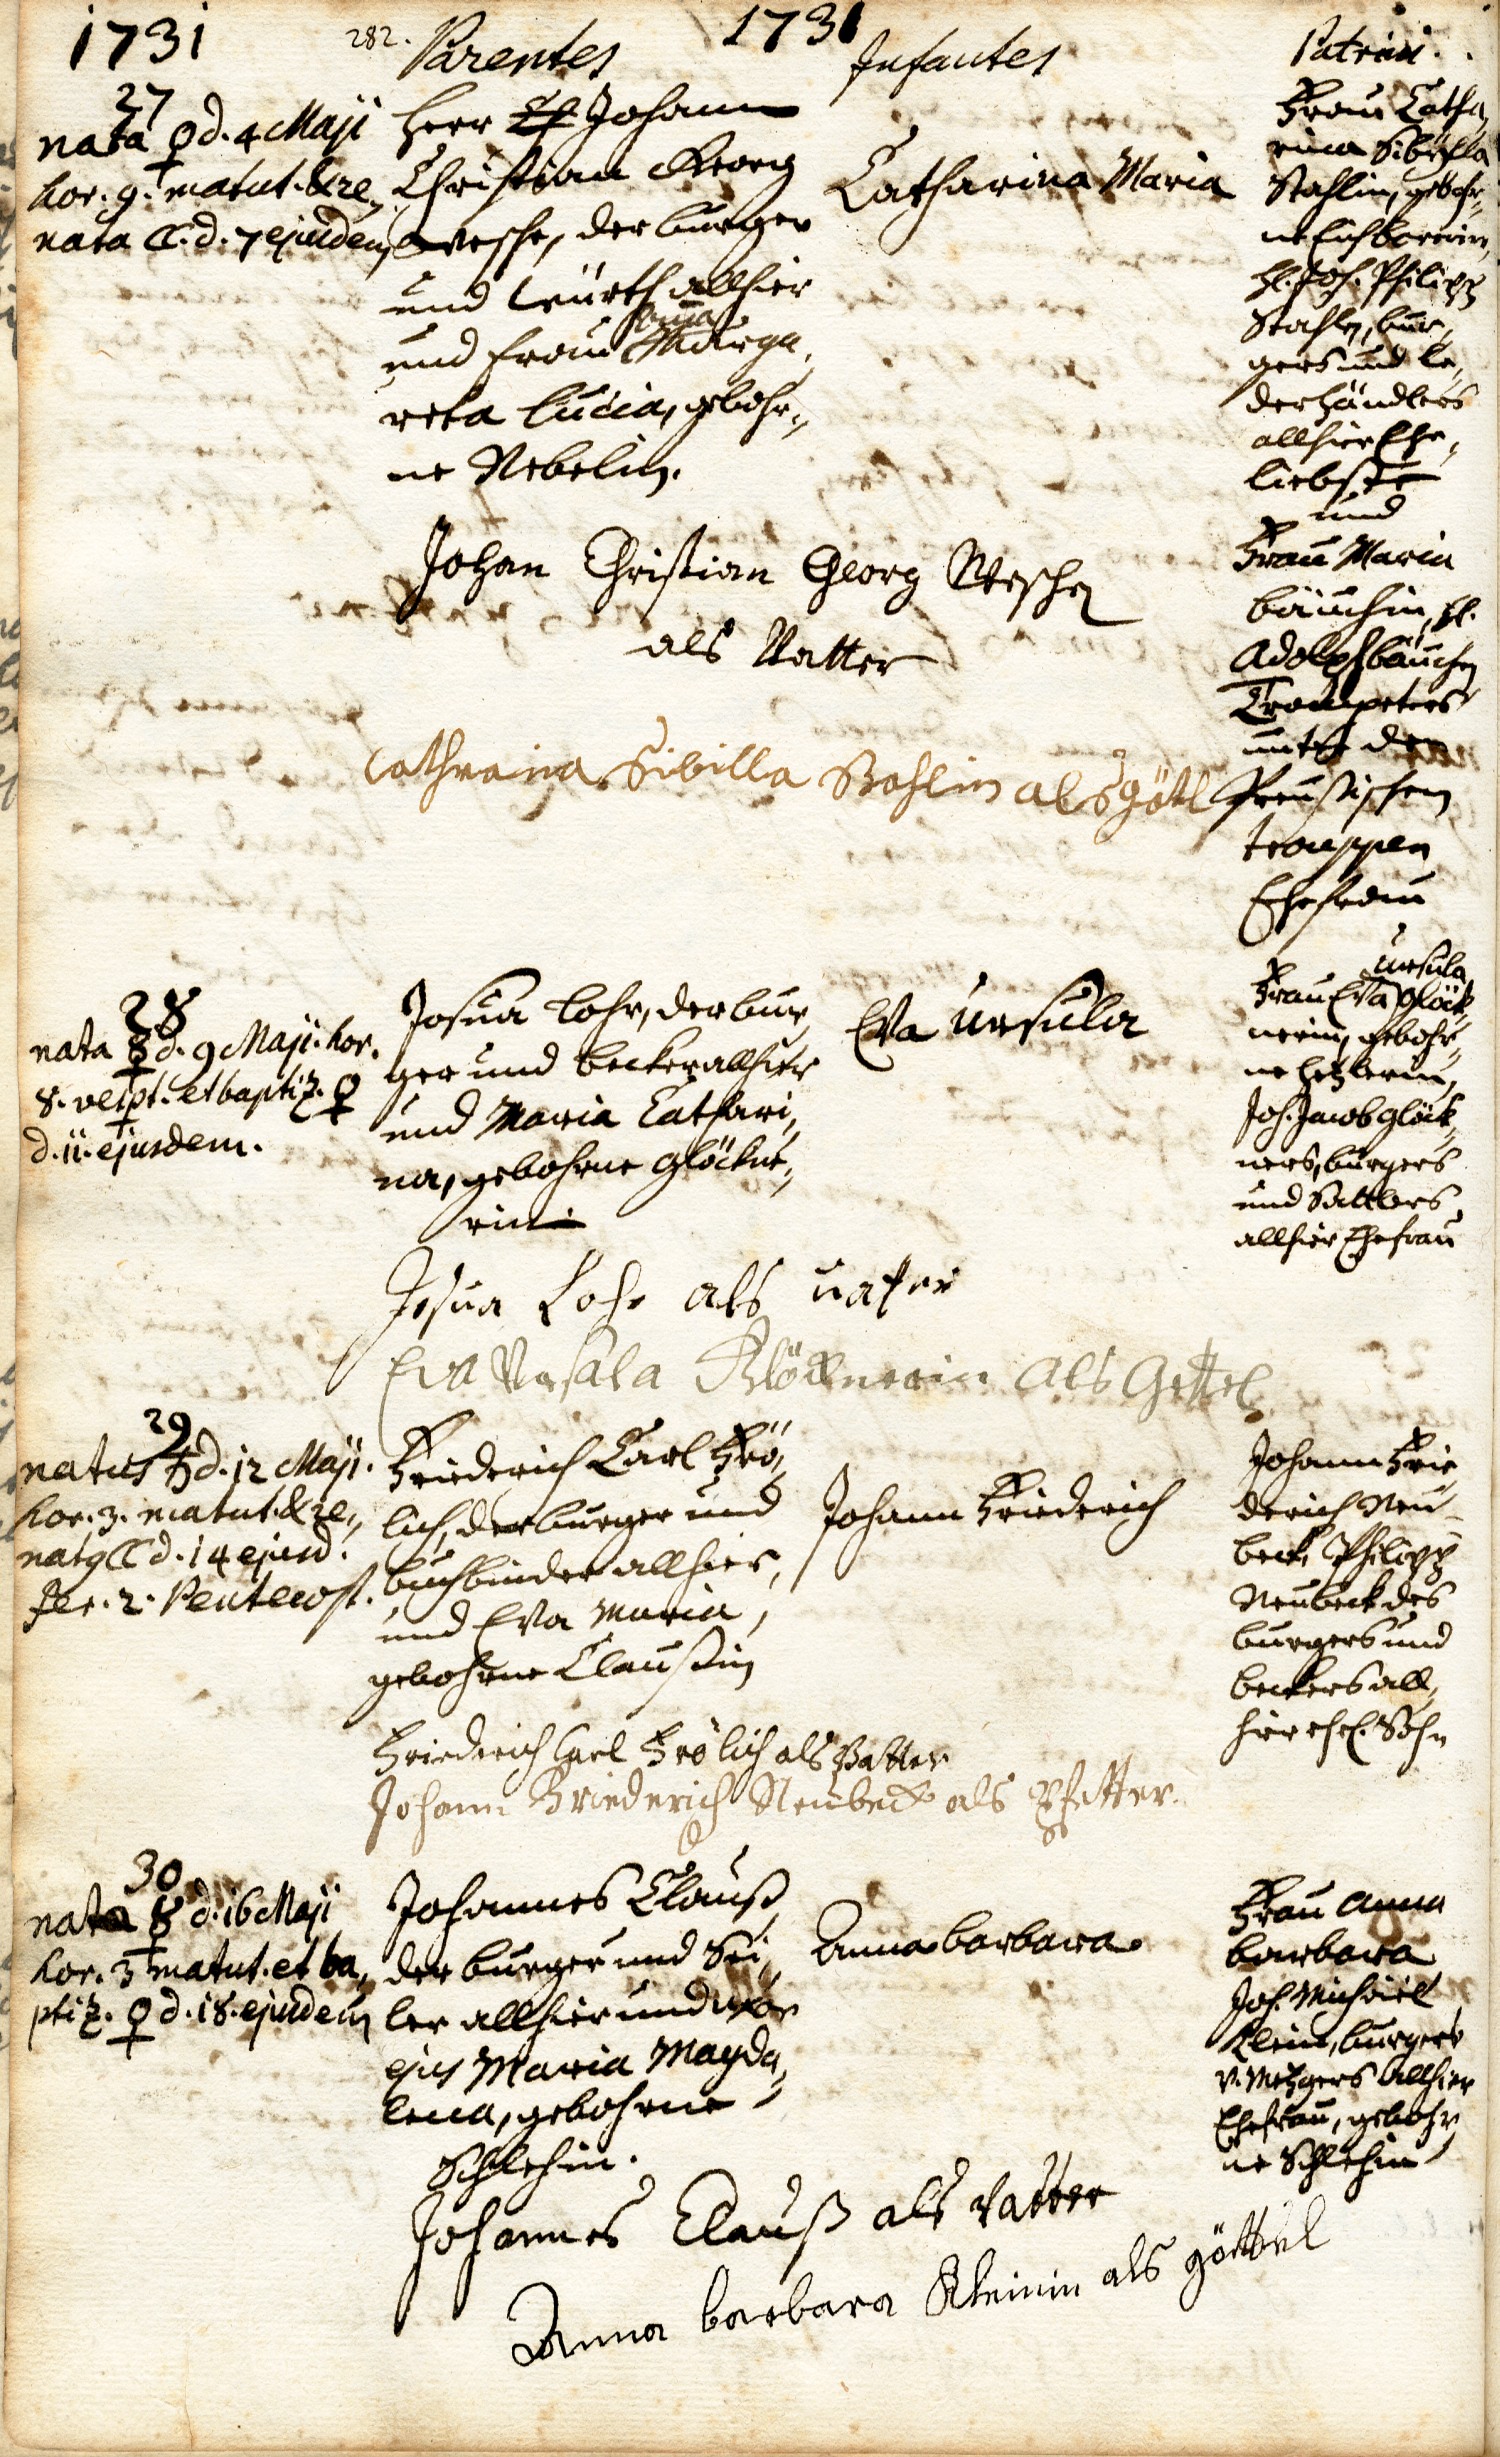 1731
282.
1731
Parentes
Infantes
Patrini.
27
nata ♀ d. 4 Maji
hor. 9. matut. & re„
nata ☾. d. 7 ejusdem
Herr Johann
Christian Georg
Wesche, der burger
und Würth allhier
und Frau Anna Marga„
reta Lucia, gebohr„
ne Nebelin.
Catharina Maria
Frau Catha„
rina Sibylla
Stahlin, gebohr„
ne Eichbornin,
H. Joh. Philipp
Stahls, bur„
gers und le„
derhändlers
allhier Ehe„
liebste
und
Frau Maria
bäuchin, H.
Adolph bäuchen
Trompeters
unter den
Preussischen
trouppen
Ehefrau
Johan Christian Georg Wesche
als Vatter
Cathraina Sibilla Stahlin als götl
28
nata ☿ d. 9 Maji. hor.
8. vespt. et baptiz. ♀
d. 11. ejusdem.
Josua Lohr, der bur„
ger und becker allhier
und Maria Cathari„
na, gebohrne Glöckne„
rin.
Eva Ursula
Frau Eva Ursula Glöck„
nerin, gebohr„
ne Hetzlerin,
Joh. Jacob Glöck„
ners, burgers
und Sattlers
allhier Ehefrau
Josua Lohr als vater
Eva Ursala Glöcknerin als Gettel
29
natus ♄ d. 12 Maji.
hor. 3. matut. & re„
nat9 ☾ d. 14 ejusd.
fer. 2. Pentecost.
Friederich Carl Frö„
lich, der burger und
buchbinder allhier,
und Eva Maria,
gebohrne Claußin
Johann Friederich
Johann Frie„
derich Neu„
beck, Philipp
Neubeck des
burgers und
beckers all„
hier ehel. Sohn
Friederich Carl Frölich als Vatter
Johann Friederich Neubeck als Pfetter.
30
nata ☿ d. 16 Maji
hor. 3 matut. et ba„
ptiz. ♀ d. 18. ejusdem
Johannes Clauß
der burger und Sei„
ler allhier und uxor
ejus Maria Magda„
lena, gebohrne
Schlehin.
Anna barbara
Frau Anna
barbara
Joh. Michael
Klein, burgers
v. Metzgers allhier
Ehefrau, gebohr„
ne Schlehin
Johannes Clauß als Vatter
Anna barbara Kleinin als göttel